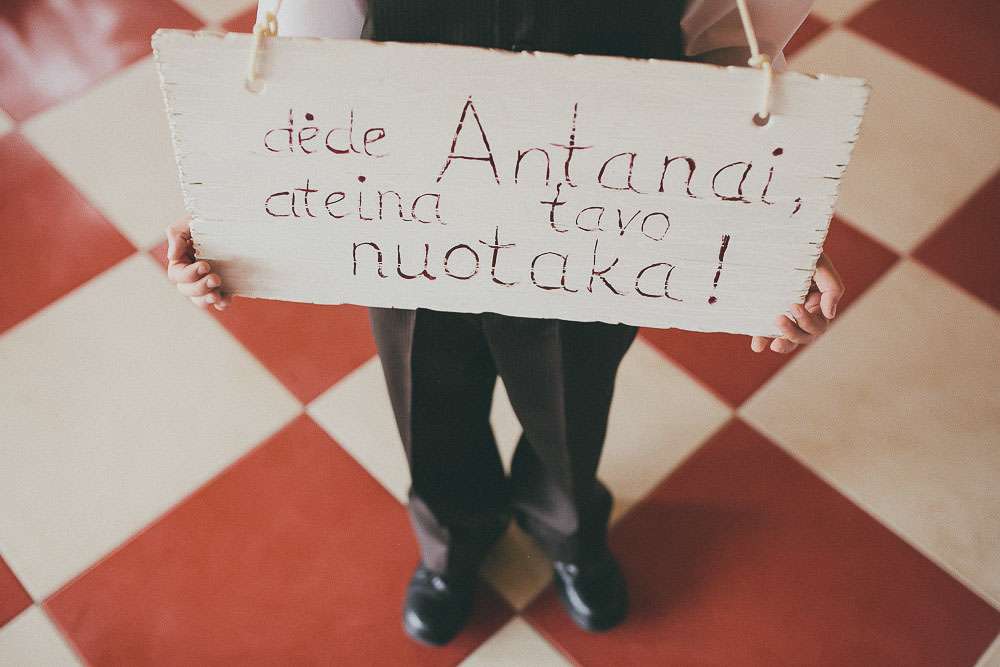 dėde Antanai,
ateina tavo
nuotaka!